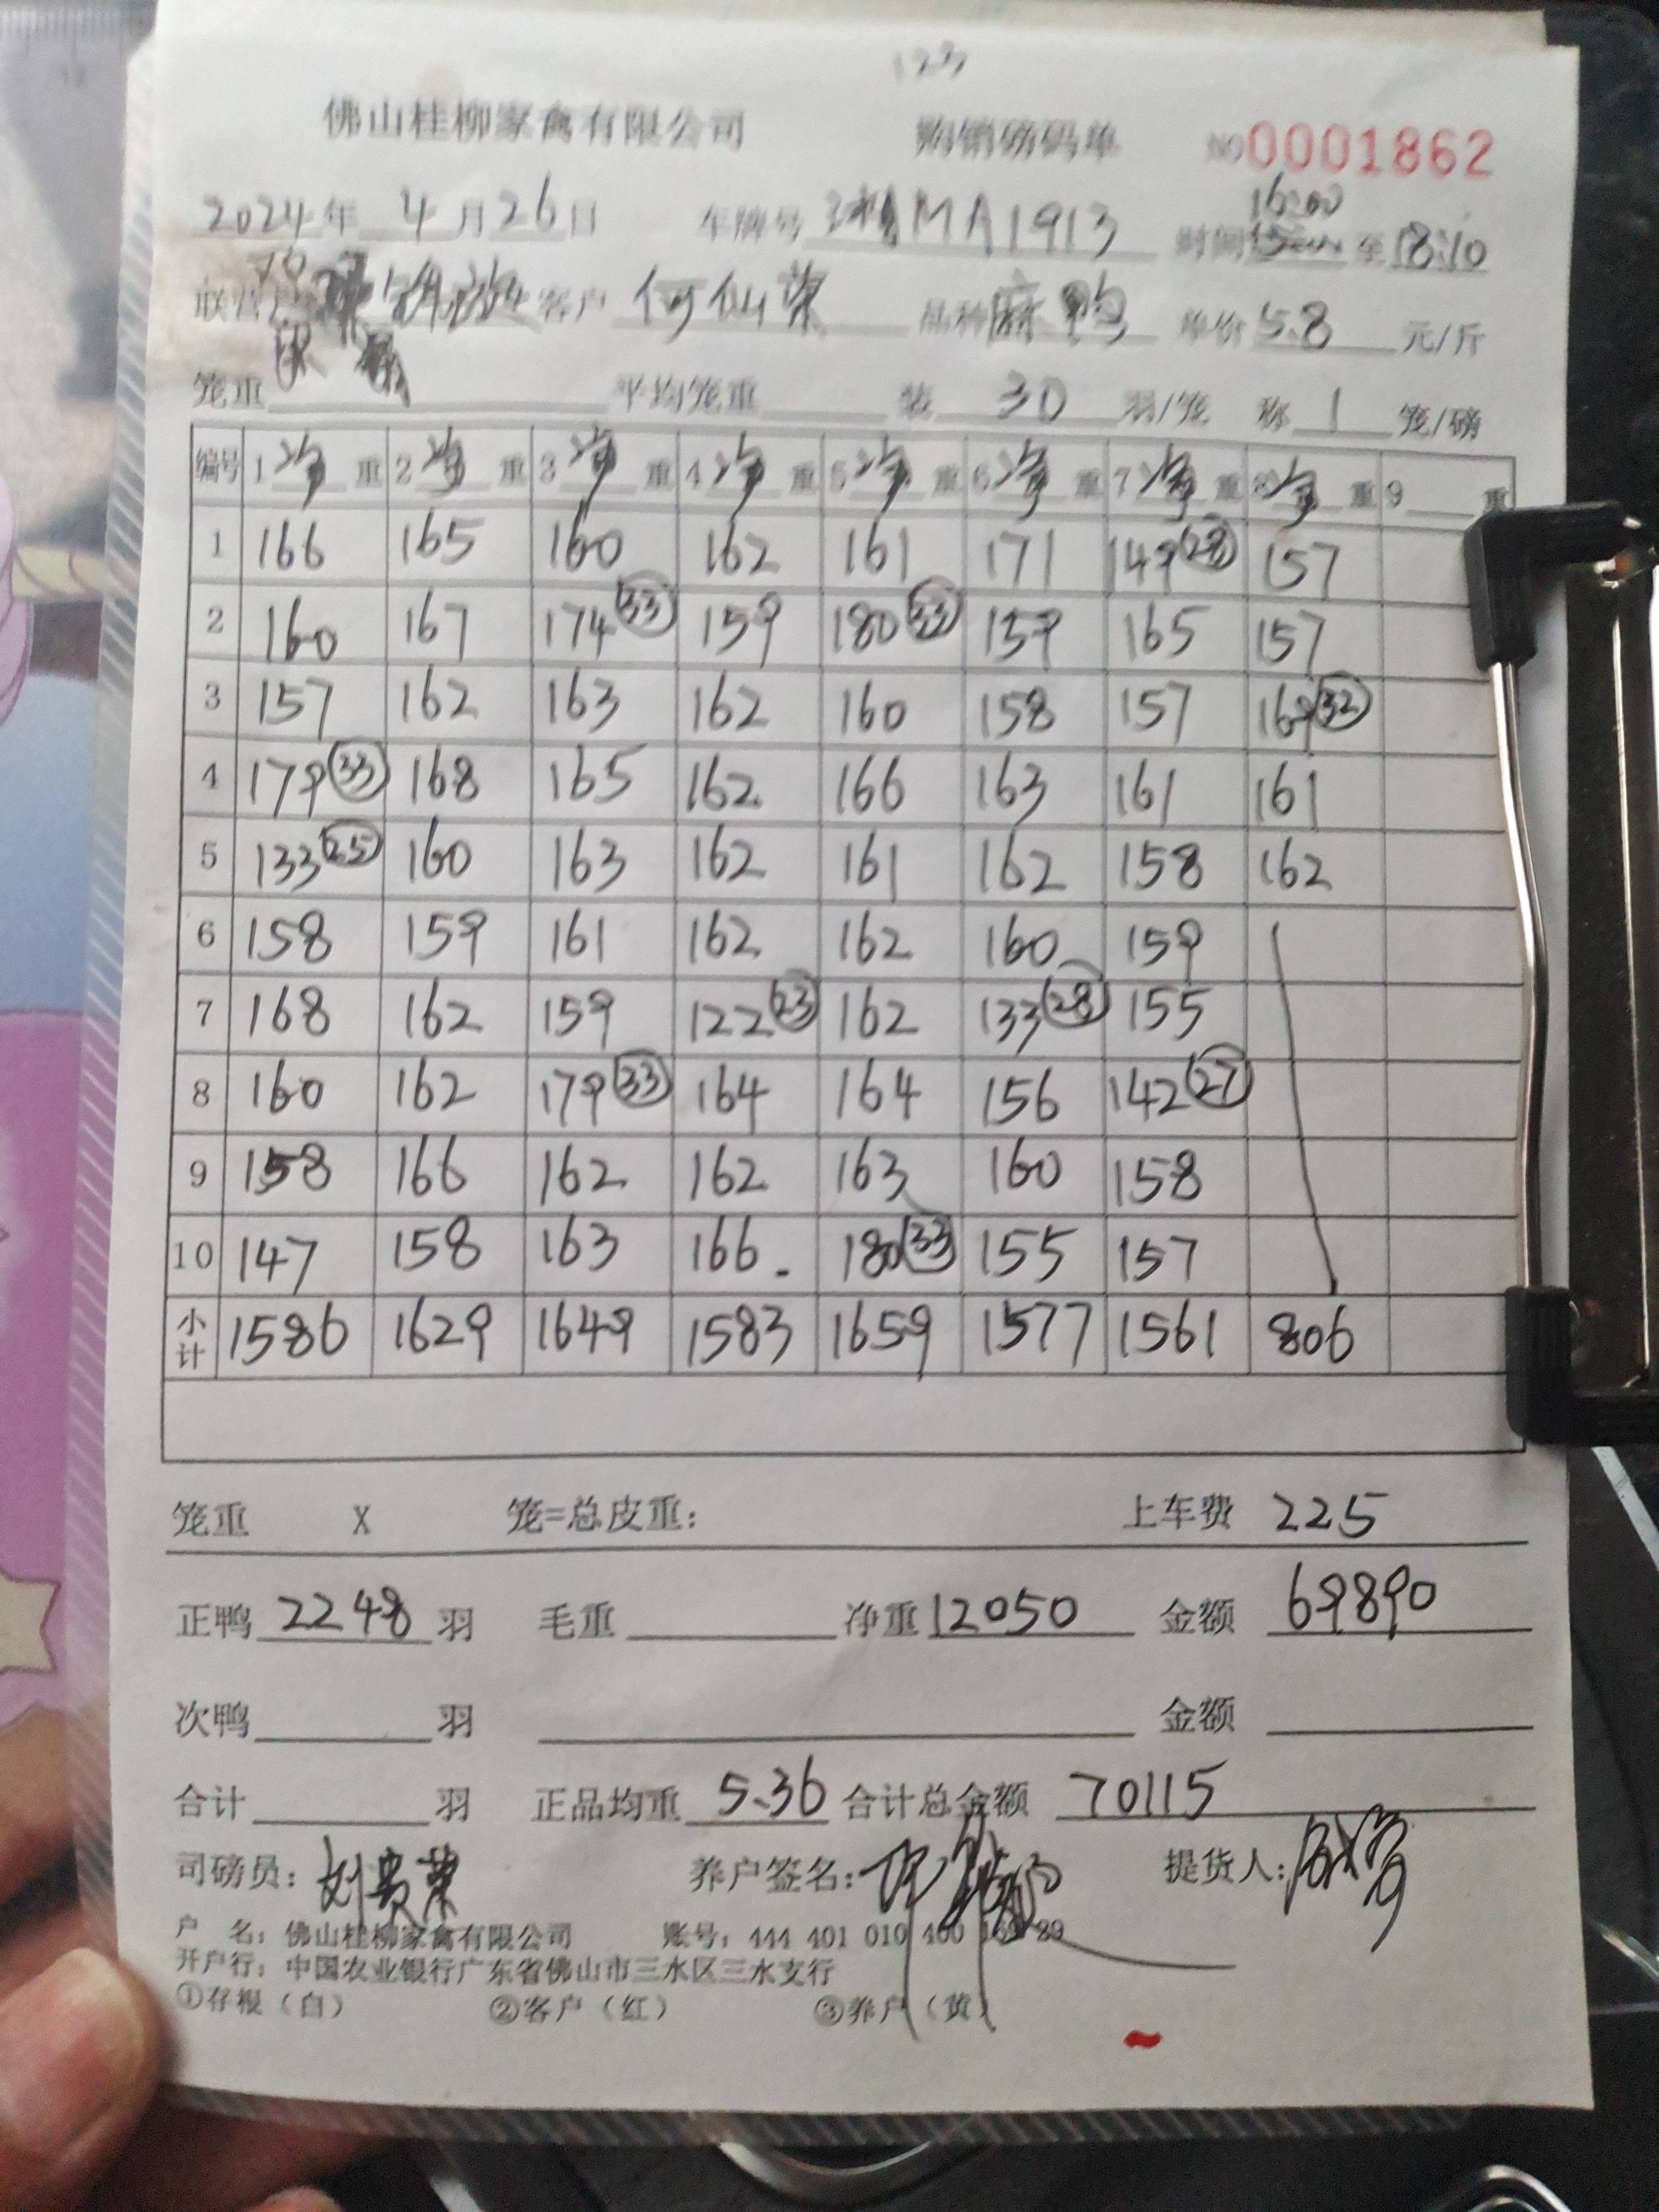 123
佛山桂柳家禽有限公司 购销磅码单 NO 0001862
2024年 4月26日 车牌号 MA1913 时间 16:00 至 18:10
联营户 客户 何仙荣 品种 麻鸭 单价 5.8 元/斤
笼重 平均笼重 装 30 羽/笼 称 1 笼/磅
编号 1 净 重 2 净 重 3 净 重 4 净 重 5 净 重 6 净 重 7 净 重 8 净 重 9 重
1 166 165 160 162 161 171 149 (28) 157
2 160 167 174 (33) 159 180 (33) 159 165 157
3 157 162 163 162 160 158 157 169 (32)
4 179 (33) 168 165 162 166 163 161 161
5 133 (25) 160 163 162 161 162 158 162
6 158 159 161 162 162 160 159
7 168 162 159 122 (23) 162 133 (28) 155
8 160 162 179 (33) 164 164 156 142 (27)
9 158 166 162 162 163 160 158
10 147 158 163 166 180 (33) 155 157
小计 1586 1629 1649 1583 1659 1577 1561 806
笼重 X 笼=总皮重: 上车费 225
正鸭 2248 羽 毛重 净重 12050 金额 69890
次鸭 羽 金额
合计 羽 正品均重 5.36 合计总金额 70115
司磅员: 刘贵荣 养户签名: 提货人:
户 名: 佛山桂柳家禽有限公司 账号: 444 401 010 400 169 29
开户行: 中国农业银行广东省佛山市三水区三水支行
①存根（白） ②客户（红） ③养户（黄）